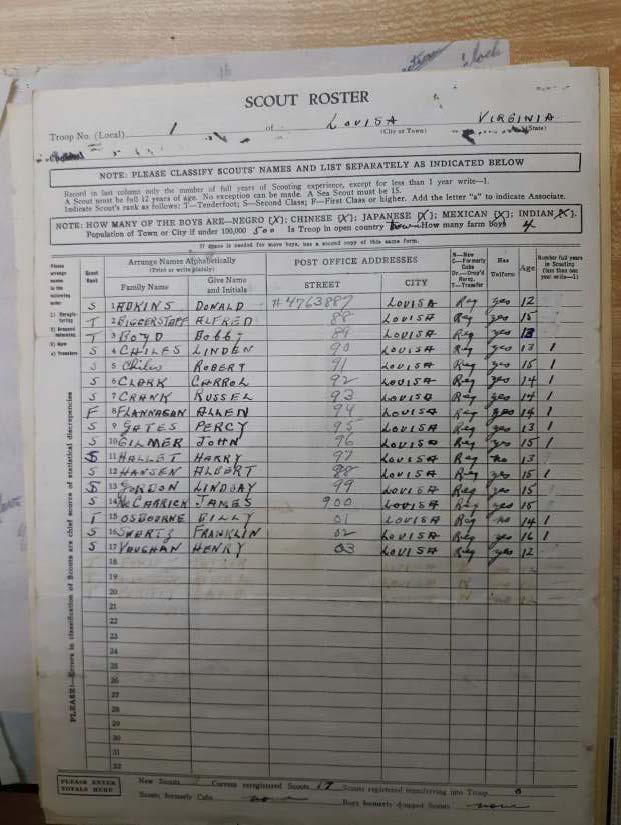 SCOUT ROSTER
Troop No. (Local) 1 of LOUISA VIRGINIA
(City or Town) (State)
NOTE: PLEASE CLASSIFY SCOUTS' NAMES AND LIST SEPARATELY AS INDICATED BELOW
Record in last column only the number of full years of Scouting experience, except for less than 1 year write—1.
A Scout must be full 12 years of age. No exception can be made. A Sea Scout must be 15.
Indicate Scout's rank as follows: T—Tenderfoot; S—Second Class; F—First Class or higher. Add the letter "a" to indicate Associate.
NOTE: HOW MANY OF THE BOYS ARE—NEGRO (X); CHINESE (X); JAPANESE (X); MEXICAN (X); INDIAN (X).
Population of Town or City if under 100,000 500 Is Troop in open country How many farm boys 4
If space is needed for more boys, use a second copy of this form.
Please arrange names in the following order: 1) Reregistering 2) Dropped reentering 3) New 4) Transfers
Scout Rank Arrange Names Alphabetically (Print or write plainly) POST OFFICE ADDRESSES N—New C—Formerly Cubs Dr.—Drop'd Rereg. T—Transfer Has Uniform Age Number full years in Scouting (less than one year write—1)
Family Name Give Name and Initials STREET CITY
S 1 ADKINS DONALD #4763887 LOUISA Reg yes 12
T 2 BIGGERSTAFF ALFRED 88 LOUISA Reg yes 15
T 3 BOYD BOBBY 89 LOUISA Reg yes 13
S 4 CHILES LINDEN 90 LOUISA Reg yes 13 1
S 5 Chiles ROBERT 91 LOUISA Reg yes 15 1
S 6 CLARK CARROL 92 LOUISA Reg yes 14 1
S 7 CRANK RUSSEL 93 LOUISA Reg yes 14 1
F 8 FLANNAGAN ALLEN 94 LOUISA Reg yes 14 1
S 9 GATES PERCY 95 LOUISA Reg yes 13 1
S 10 GILMER JOHN 96 LOUISA Reg yes 15 1
S 11 HALLET HARRY 97 LOUISA Reg no 13
S 12 HANSEN ALBERT 98 LOUISA Reg yes 15 1
S 13 GORDON LINDSAY 99 LOUISA Reg yes 15
S 14 McCARRICK JAMES 900 LOUISA Reg yes 15
T 15 OSBOURNE BILLY 01 LOUISA Reg no 14 1
S 16 SWARTZ FRANKLIN 02 LOUISA Reg yes 16 1
S 17 VAUGHAN HENRY 03 LOUISA Reg yes 12
18
19
20
21
22
23
24
25
26
27
28
29
30
31
32
PLEASE!—Errors in classification of Scouts are chief source of statistical discrepancies
PLEASE ENTER TOTALS HERE
New Scouts Correct reregistered Scouts 17 Scouts registered transferring into Troop 0
Scouts formerly Cubs none Boys formerly dropped Scouts none